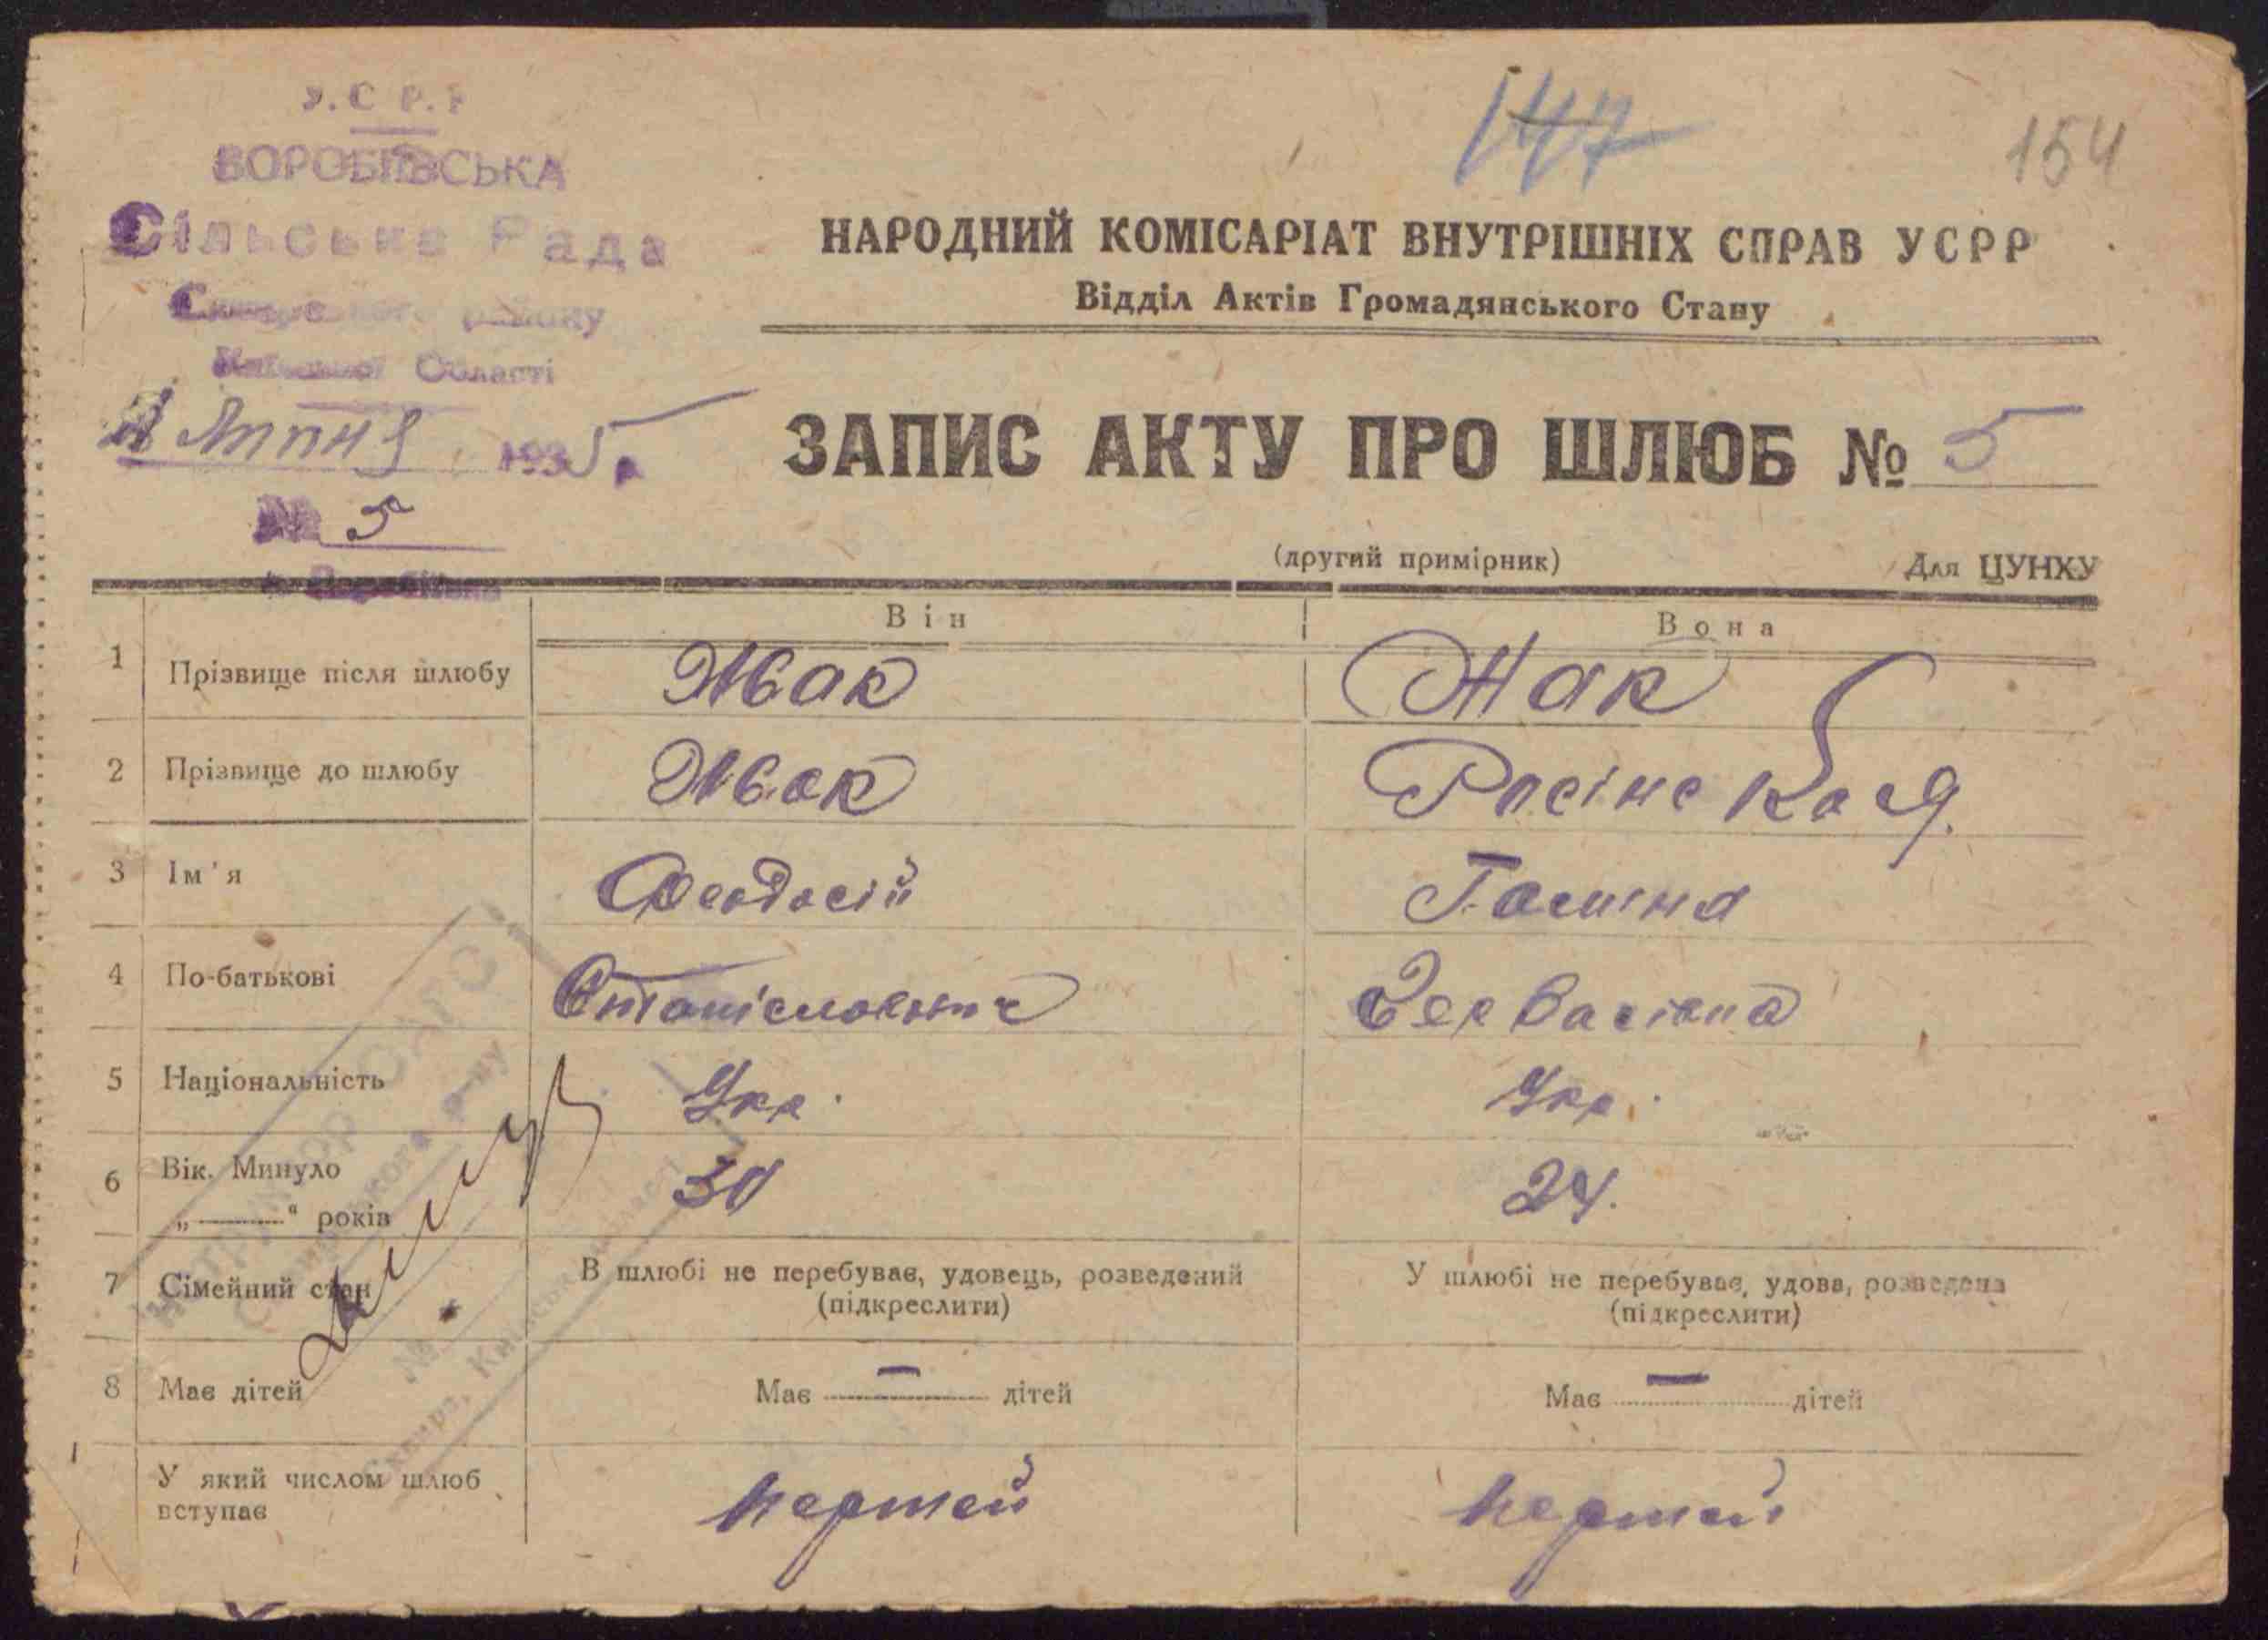 У.С.Р.Р
ВОРОБІЇВСЬКА
Сільська Рада
Сквирського району
Київської Області
Липня 1935 р.
№ 5
147
154
НАРОДНИЙ КОМІСАРІАТ ВНУТРІШНІХ СПРАВ УСРР
Відділ Актів Громадянського Стану
ЗАПИС АКТУ ПРО ШЛЮБ № 5
(другий примірник)
Для ЦУНХУ
Він Вона
1 Прізвище після шлюбу Жак Жак
2 Прізвище до шлюбу Жак Росінская
3 Ім'я Феодосій Галина
4 По-батькові Станіславович Гервасіевна
5 Національність Укр. Укр.
6 Вік. Минуло 30 24.
„ “ років
7 Сімейний стан В шлюбі не перебував, удовець, розведений У шлюбі не перебував, удова, розведена
(підкреслити) (підкреслити)
8 Має дітей Має — дітей Має — дітей
У який числом шлюб вступає первей первей